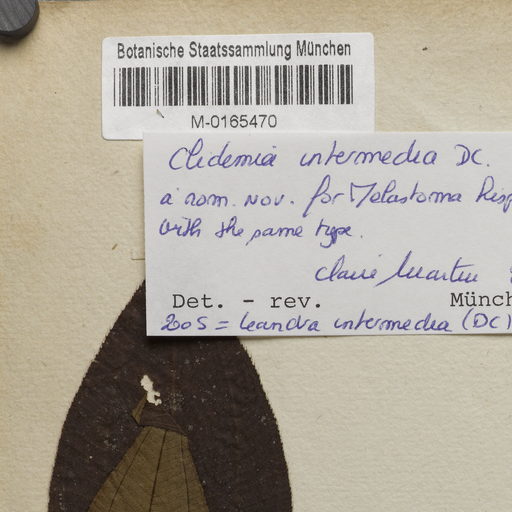 Botanische Staatssammlung München
M-0165470
Clidemia intermedia DC.
a nom. nov. for Melastoma hisp
with the same type.
Claire Martin
Det. - rev. Münch
2005 = Leandra intermedia (DC)